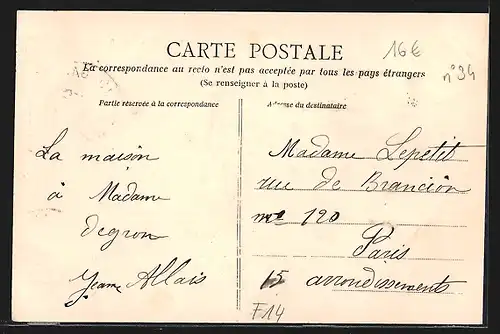 CARTE POSTALE
16€
n° 94
La correspondance au recto n'est pas acceptée par tous les pays étrangers
(Se renseigner à la poste)
Partie réservée à la correspondance
Adresse du destinataire
La maison
à Madame
degron
Jeanne Allais
Madame Lepetit
rue de Brancion
120
Paris
15 arrondissements
F14